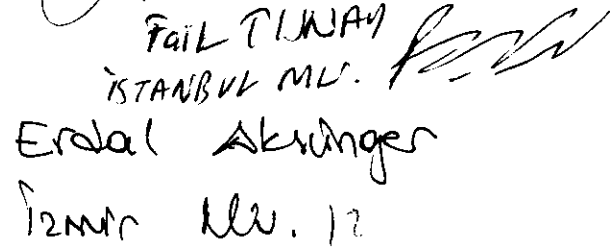 Fail TUNAY
İSTANBUL MV.
Erdal Aksünger
İzmir Mv. 12